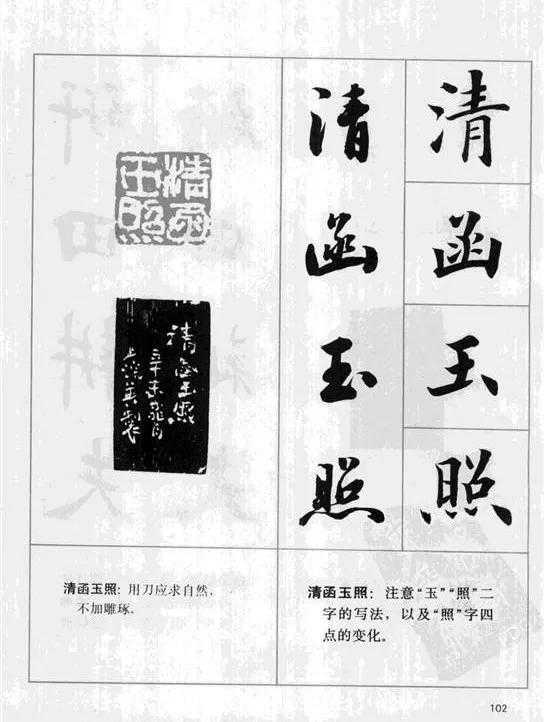 清函玉照
清函玉照
清函玉照
清函玉照
辛未
清函玉照：用刀应求自然，
不加雕琢。
清函玉照：注意“玉”“照”二
字的写法，以及“照”字四
点的变化。
102